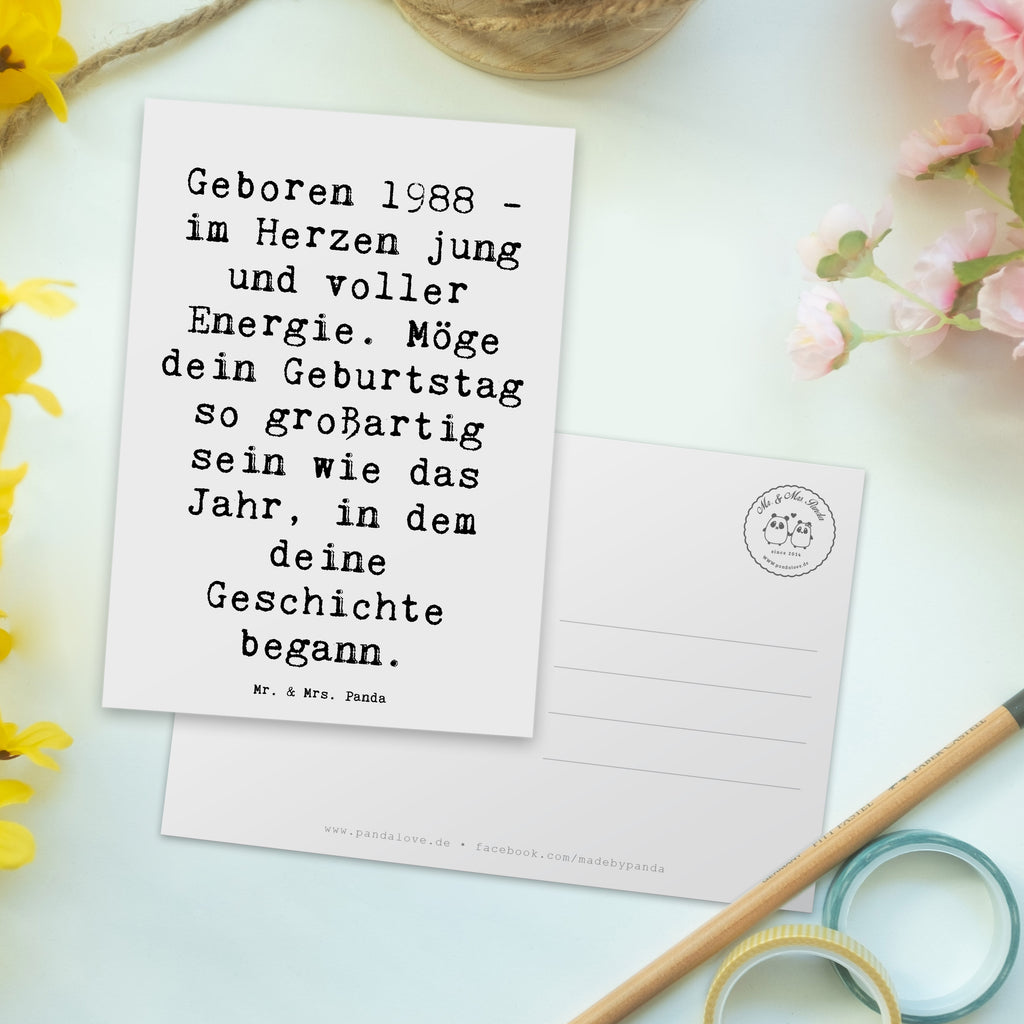 Geboren 1988 -
im Herzen jung
und voller
Energie. Möge
dein Geburtstag
so großartig
sein wie das
Jahr, in dem
deine
Geschichte
begann.
Mr. & Mrs. Panda
Mr. & Mrs. Panda
since 2014
www.pandalove.de
www.pandalove.de • facebook.com/madebypanda
PITT PASTEL FABER-CASTELL